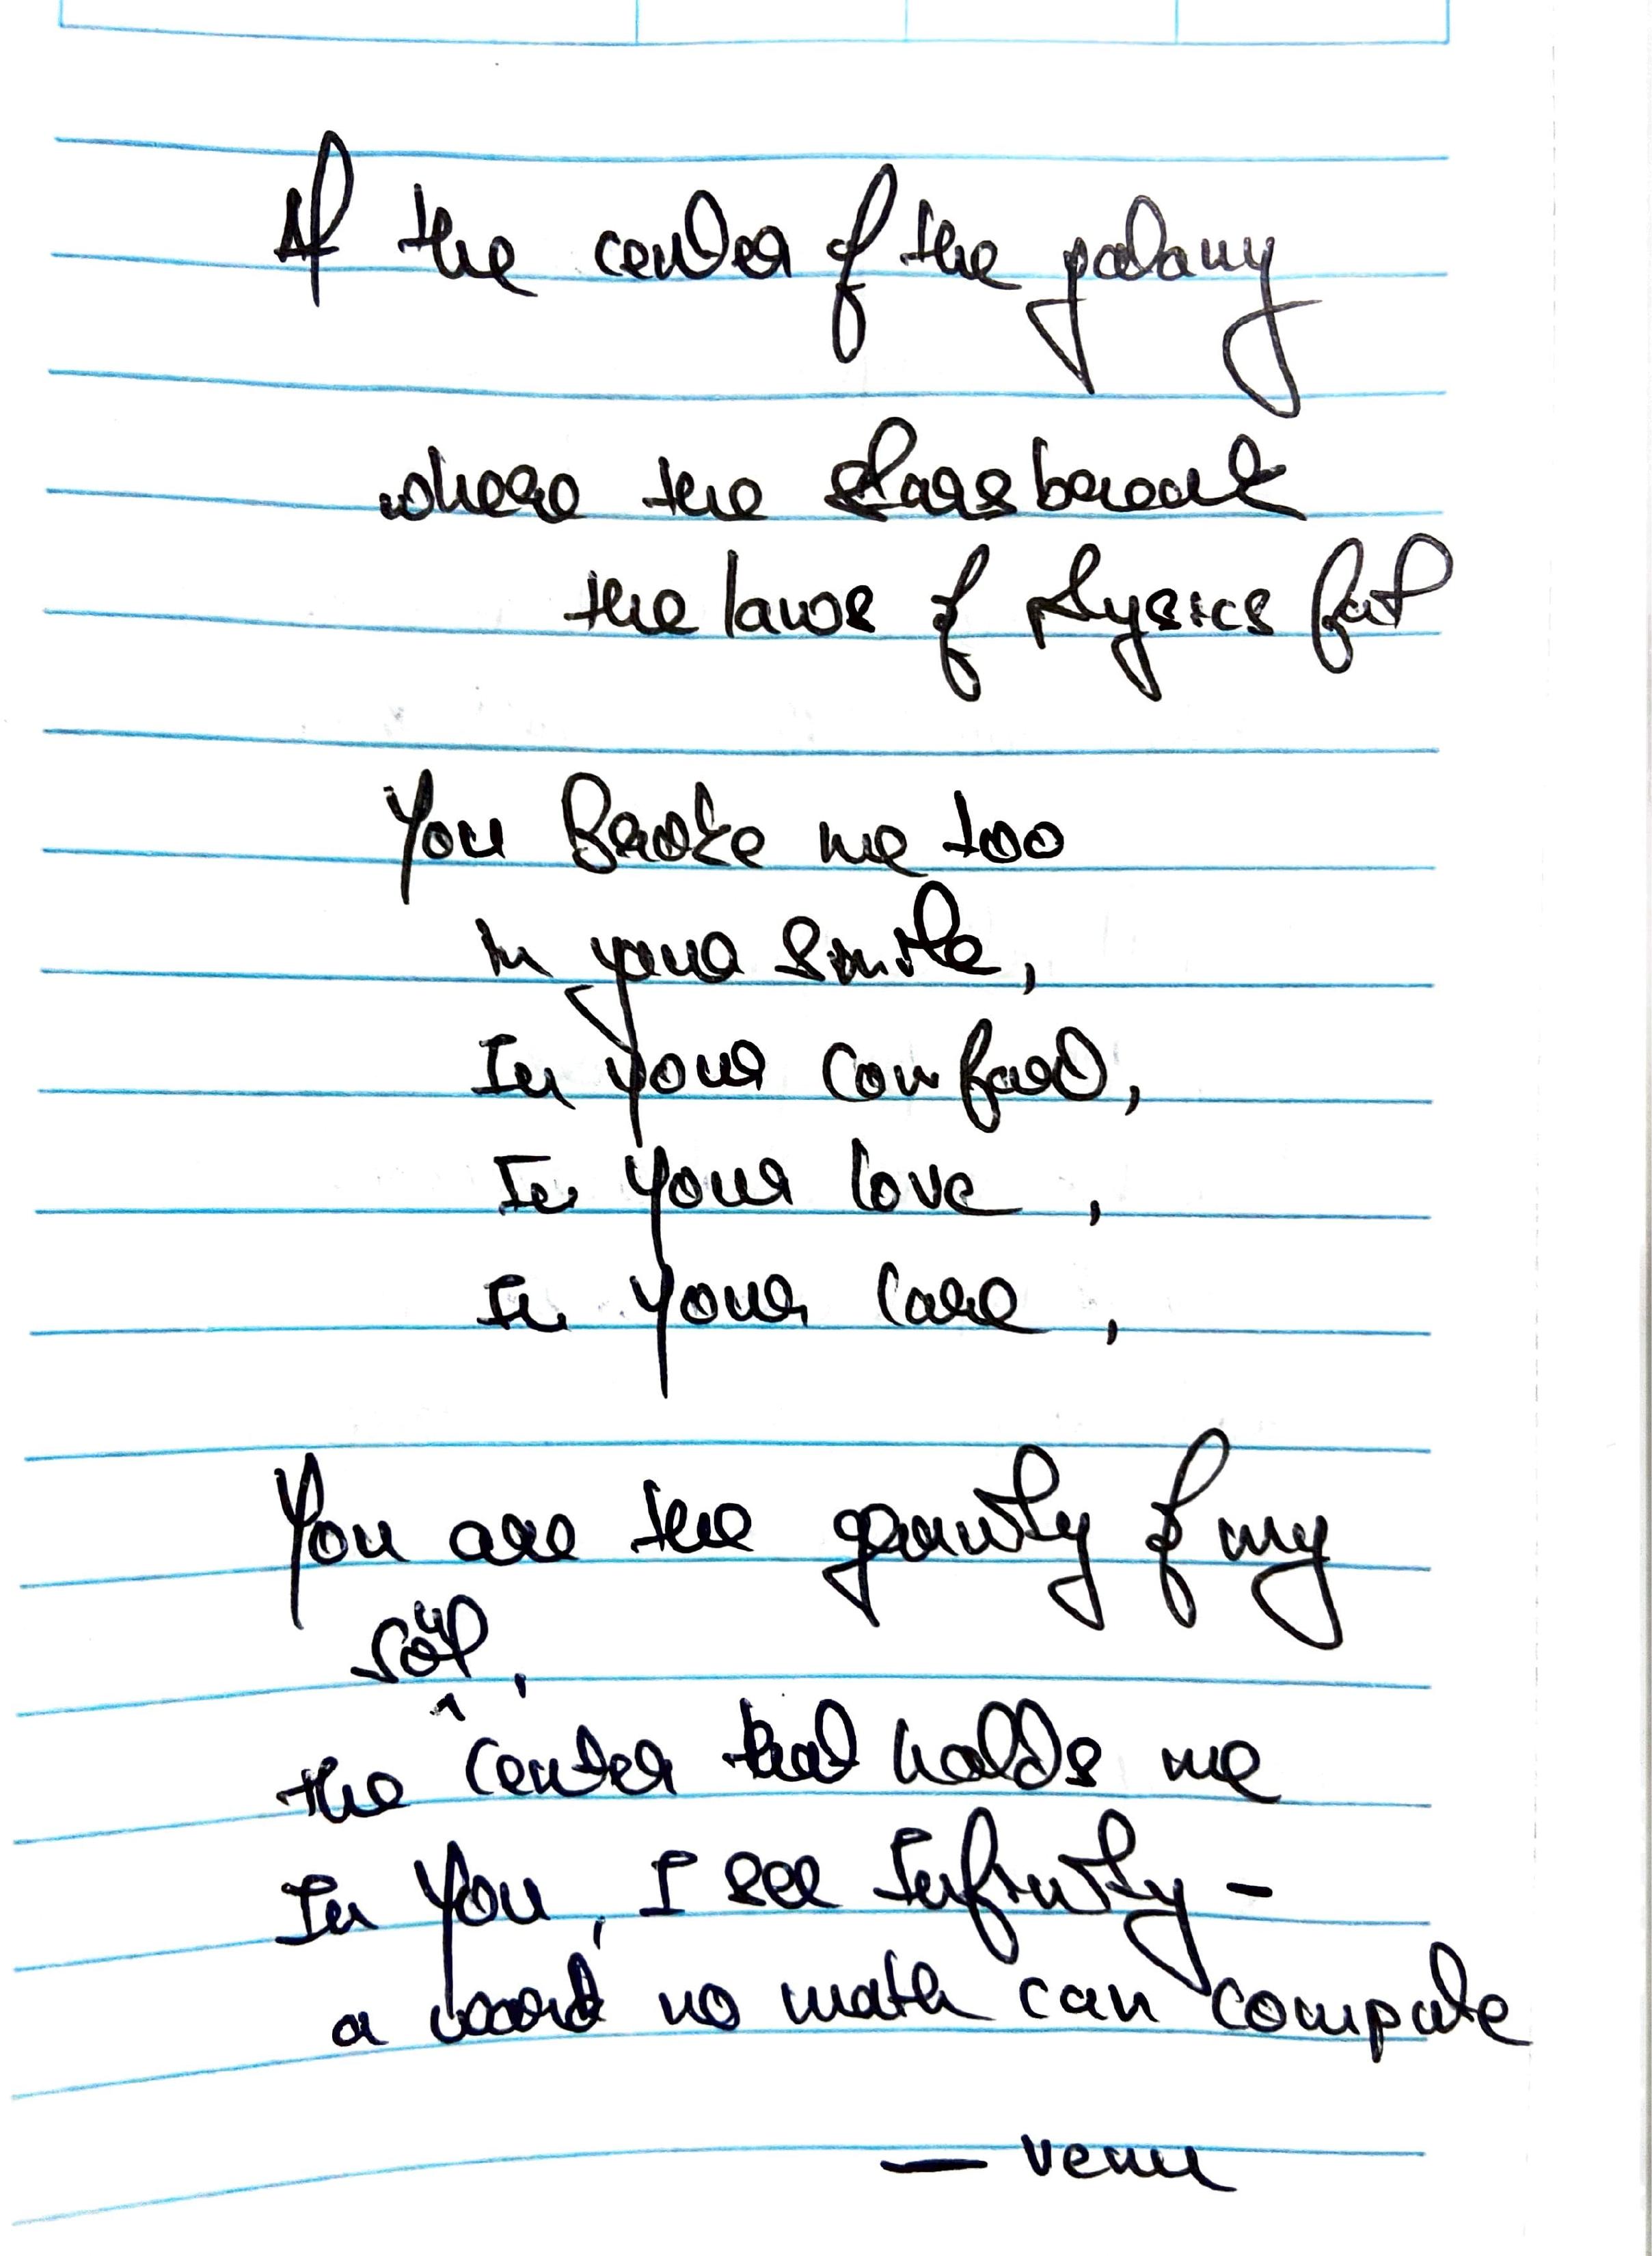 If the center of the galaxy
where the stars break
the laws of physics fail
You Broke me too
In your smile,
In your comfort,
In your love,
In your care,
You are the gravity of my
soul,
the center that holds me
In you, I see Infinity -
a no math can compute
— venu